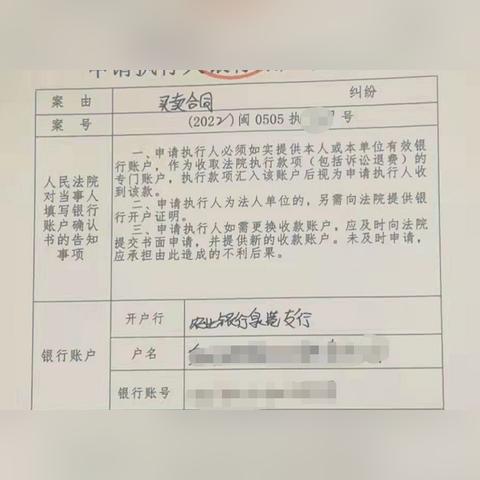 申请执行人银行
案 由 买卖合同 纠纷
案 号 (2022)闽0505执 号
人民法院
对当事人
填写银行
账户确认
书的告知
事项
一、申请执行人必须如实提供本人或本单位有效银
行账户，作为收取法院执行款项（包括诉讼退费）的
专门账户，执行款项汇入该账户后视为申请执行人收
到该款。
二、申请执行人为法人单位的，另需向法院提供银
行开户证明。
三、申请执行人如需更换收款账户，应及时向法院
提交书面申请，并提供新的收款账户。未及时申请，
应承担由此造成的不利后果。
银行账户
开户行 农业银行泉港支行
户名
银行账号